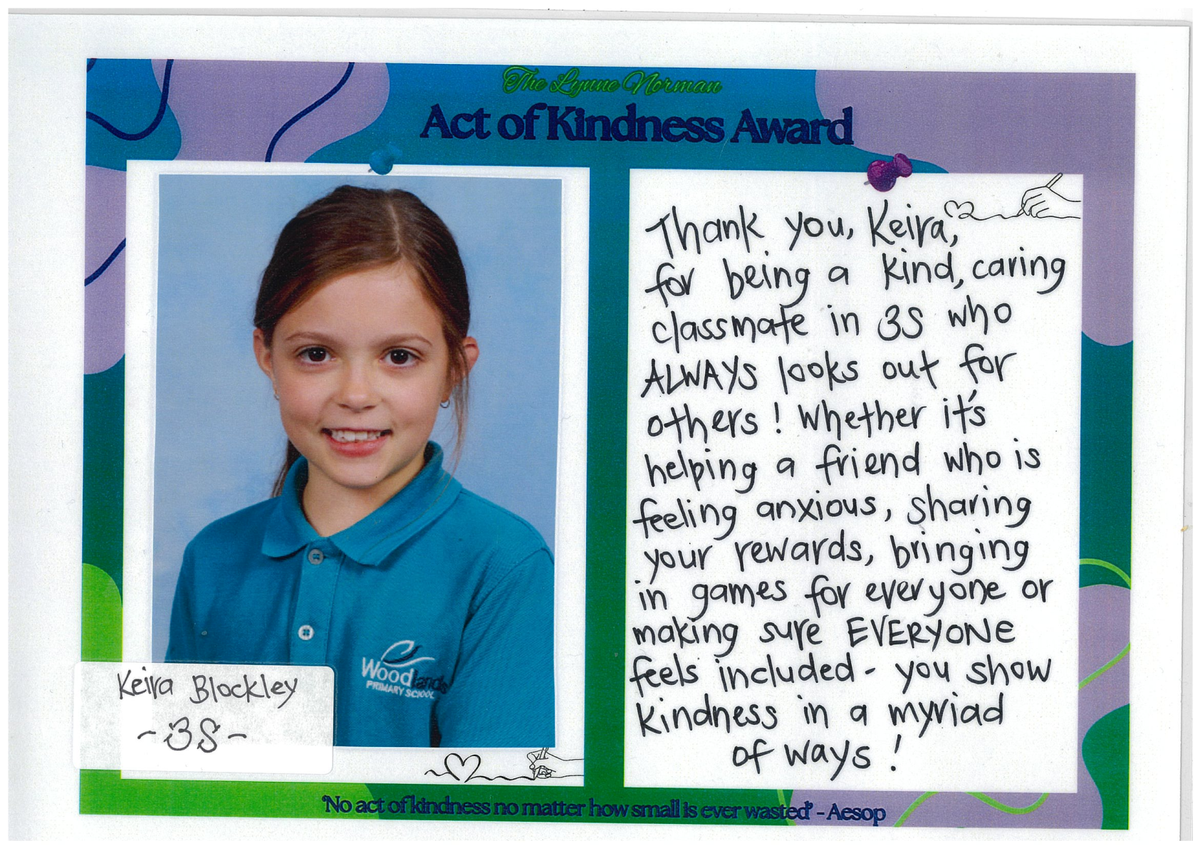 The Lynne Norman
Act of Kindness Award
Thank you, Keira,
for being a kind, caring
classmate in 3S who
ALWAYS looks out for
others! Whether it's
helping a friend who is
feeling anxious, sharing
your rewards, bringing
in games for everyone or
making sure EVERYONE
feels included - you show
kindness in a myriad
of ways!
Woodlands
PRIMARY SCHOOL
Keira Blockley
-3S-
'No act of kindness no matter how small is ever wasted' - Aesop